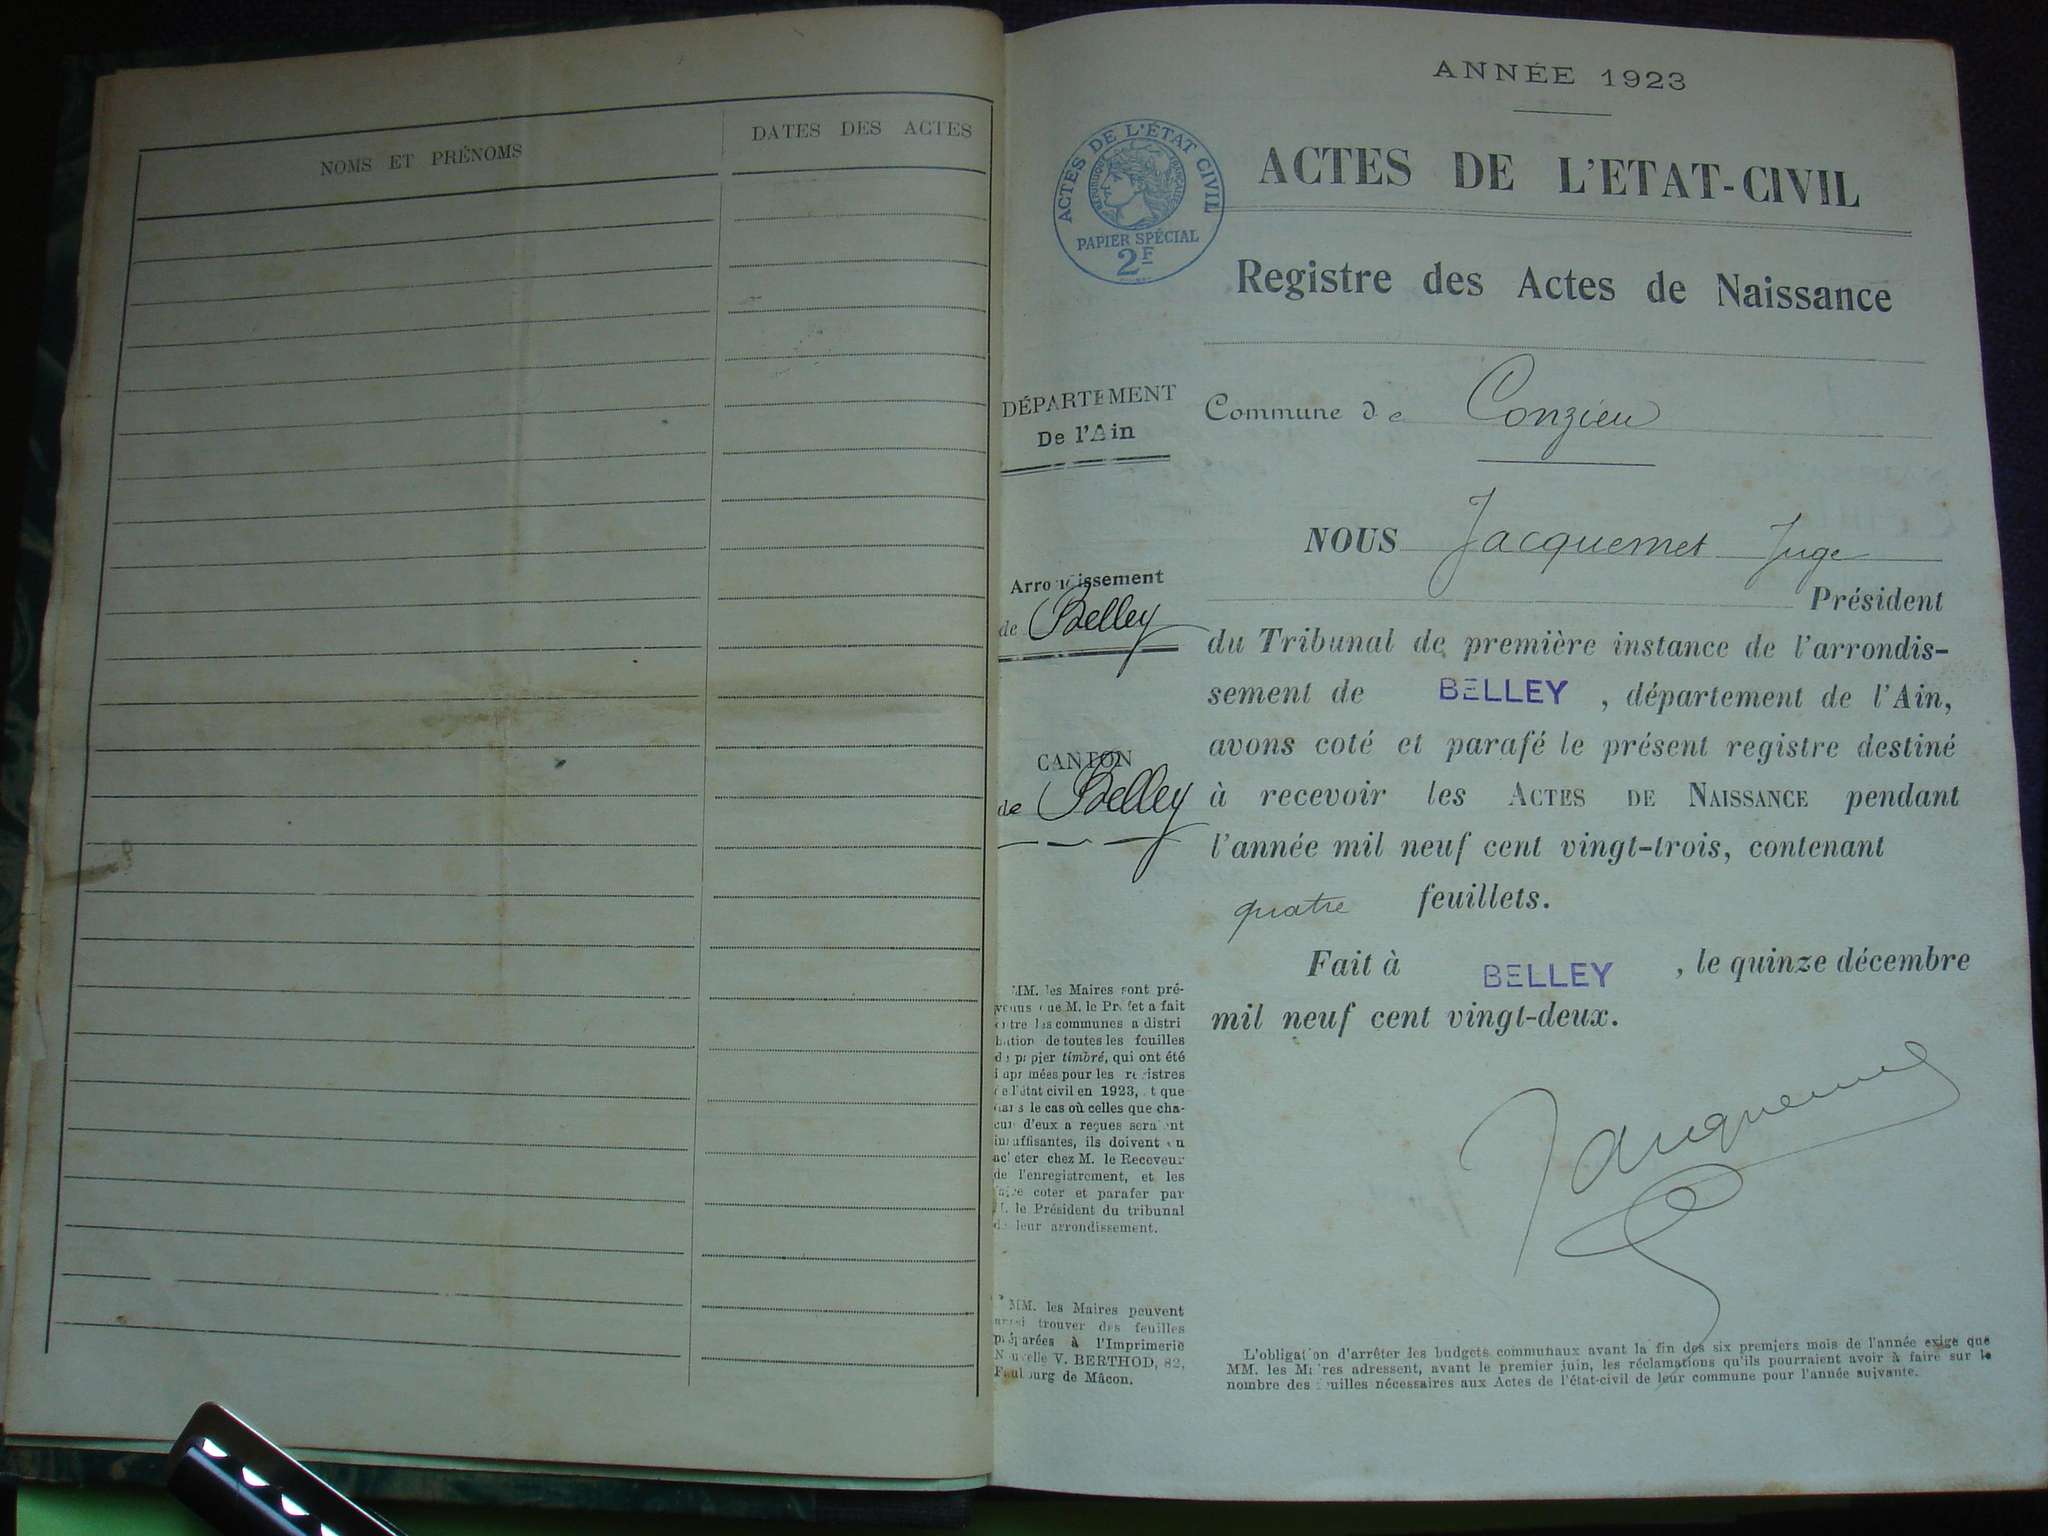 NOMS ET PRÉNOMS
DATES DES ACTES
ANNÉE 1923
ACTES DE L'ÉTAT CIVIL
RÉPUBLIQUE FRANÇAISE
PAPIER SPÉCIAL
2F
ACTES DE L'ETAT-CIVIL
Registre des Actes de Naissance
DÉPARTEMENT
De l'Ain
Commune de Conzieu
NOUS Jacquemet Juge
Arrondissement
de Belley
Président
du Tribunal de première instance de l'arrondis-
sement de BELLEY, département de l'Ain,
avons coté et parafé le présent registre destiné
à recevoir les ACTES DE NAISSANCE pendant
l'année mil neuf cent vingt-trois, contenant
quatre feuillets.
CANTON
de Belley
Fait à BELLEY, le quinze décembre
mil neuf cent vingt-deux.
MM. les Maires sont pré-
venus que M. le Préfet a fait
entre les communes a distri
bution de toutes les feuilles
de papier timbré, qui ont été
imprimées pour les registres
de l'état civil en 1923, et que
dans le cas où celles que cha-
cun d'eux a reçues seraient
insuffisantes, ils doivent en
acheter chez M. le Receveur
de l'enregistrement, et les
faire coter et parafer par
M. le Président du tribunal
de leur arrondissement.
Jacquemet
MM. les Maires peuvent
aussi trouver des feuilles
préparées à l'Imprimerie
Nouvelle V. BERTHOD, 82,
Faubourg de Mâcon.
L'obligation d'arrêter les budgets communaux avant la fin des six premiers mois de l'année exige que
MM. les Maires adressent, avant le premier juin, les réclamations qu'ils pourraient avoir à faire sur le
nombre des feuilles nécessaires aux Actes de l'état-civil de leur commune pour l'année suivante.